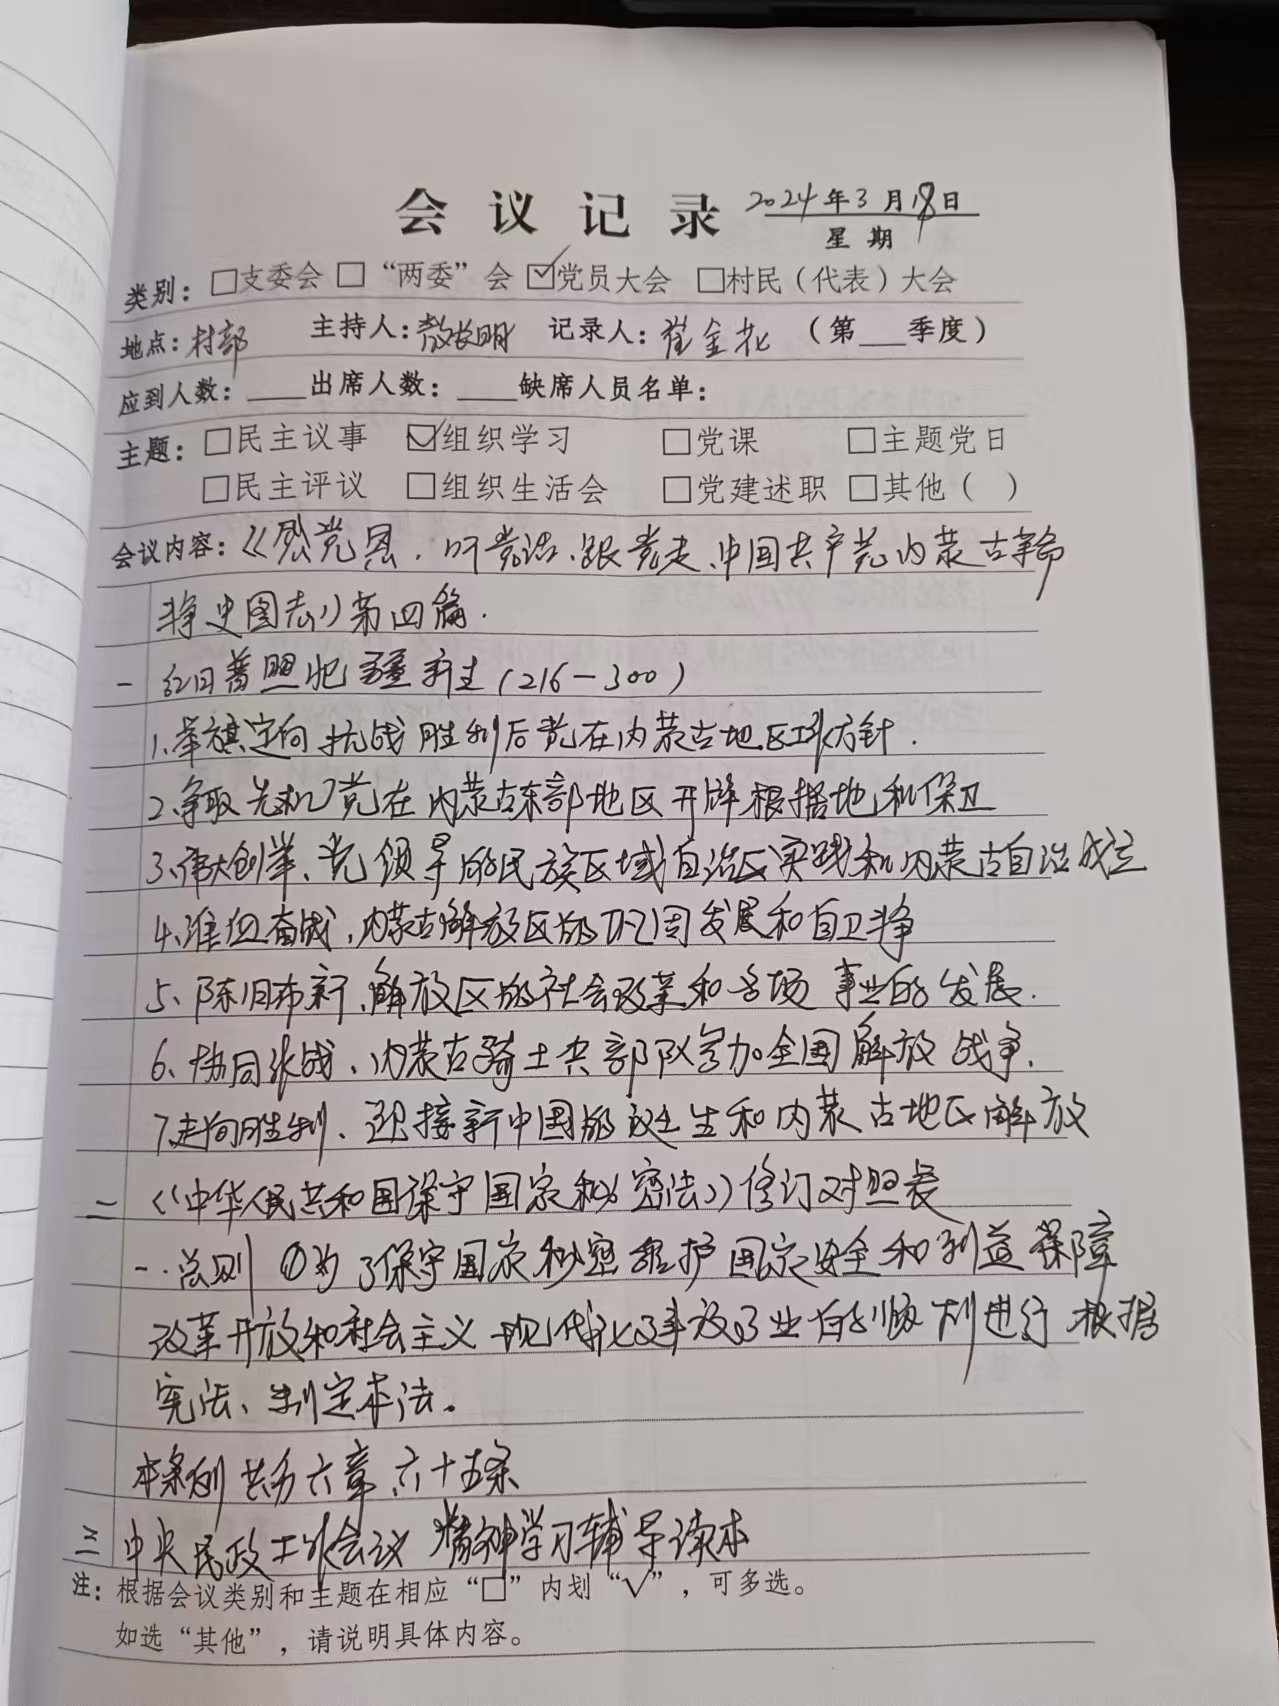 会议记录 2024年3月18日
星期
类别：□支委会 □“两委”会 ☑党员大会 □村民（代表）大会
地点：村部 主持人：敖长明 记录人：崔金花 （第___季度）
应到人数：____出席人数：____缺席人员名单：
主题：□民主议事 ☑组织学习 □党课 □主题党日
□民主评议 □组织生活会 □党建述职 □其他（ ）
会议内容：《感党恩、听党话、跟党走、中国共产党内蒙古革命
斗争史图志》第四篇.
一 红日普照北疆新生（216－300）
1.举旗定向 抗战胜利后党在内蒙古地区工作方针.
2.争取先机 党在内蒙古东部地区开辟根据地和保卫
3.伟大创举、党领导的民族区域自治区实践和内蒙古自治成立
4、浴血奋战，内蒙古解放区的巩固发展和自卫斗争
5、陈旧布新、解放区的社会改革和各项事业的发展.
6、协同作战、内蒙古骑士兵部队参加全国解放战争.
7.走向胜利、迎接新中国的诞生和内蒙古地区解放
二 《中华人民共和国保守国家秘密法》修订对照表
一.总则 ①为了保守国家秘密维护国家安全和利益保障
改革开放和社会主义现代化建设事业的顺利进行 根据
宪法、制定本法。
本条例共分六章、六十五条
三 中央民政工作会议 精神学习辅导读本
注：根据会议类别和主题在相应“□”内划“√”，可多选。
如选“其他”，请说明具体内容。